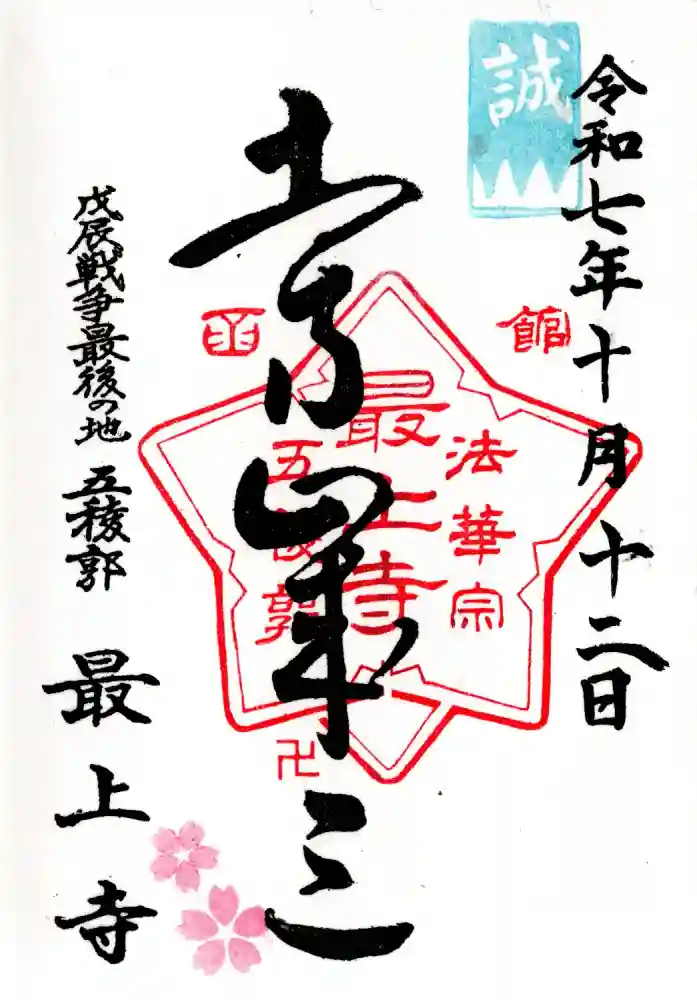 誠
令和七年十月十二日
土方歳三
函
館
法華宗
最上寺
五稜郭
卍
戊辰戦争最後の地 五稜郭
最上寺